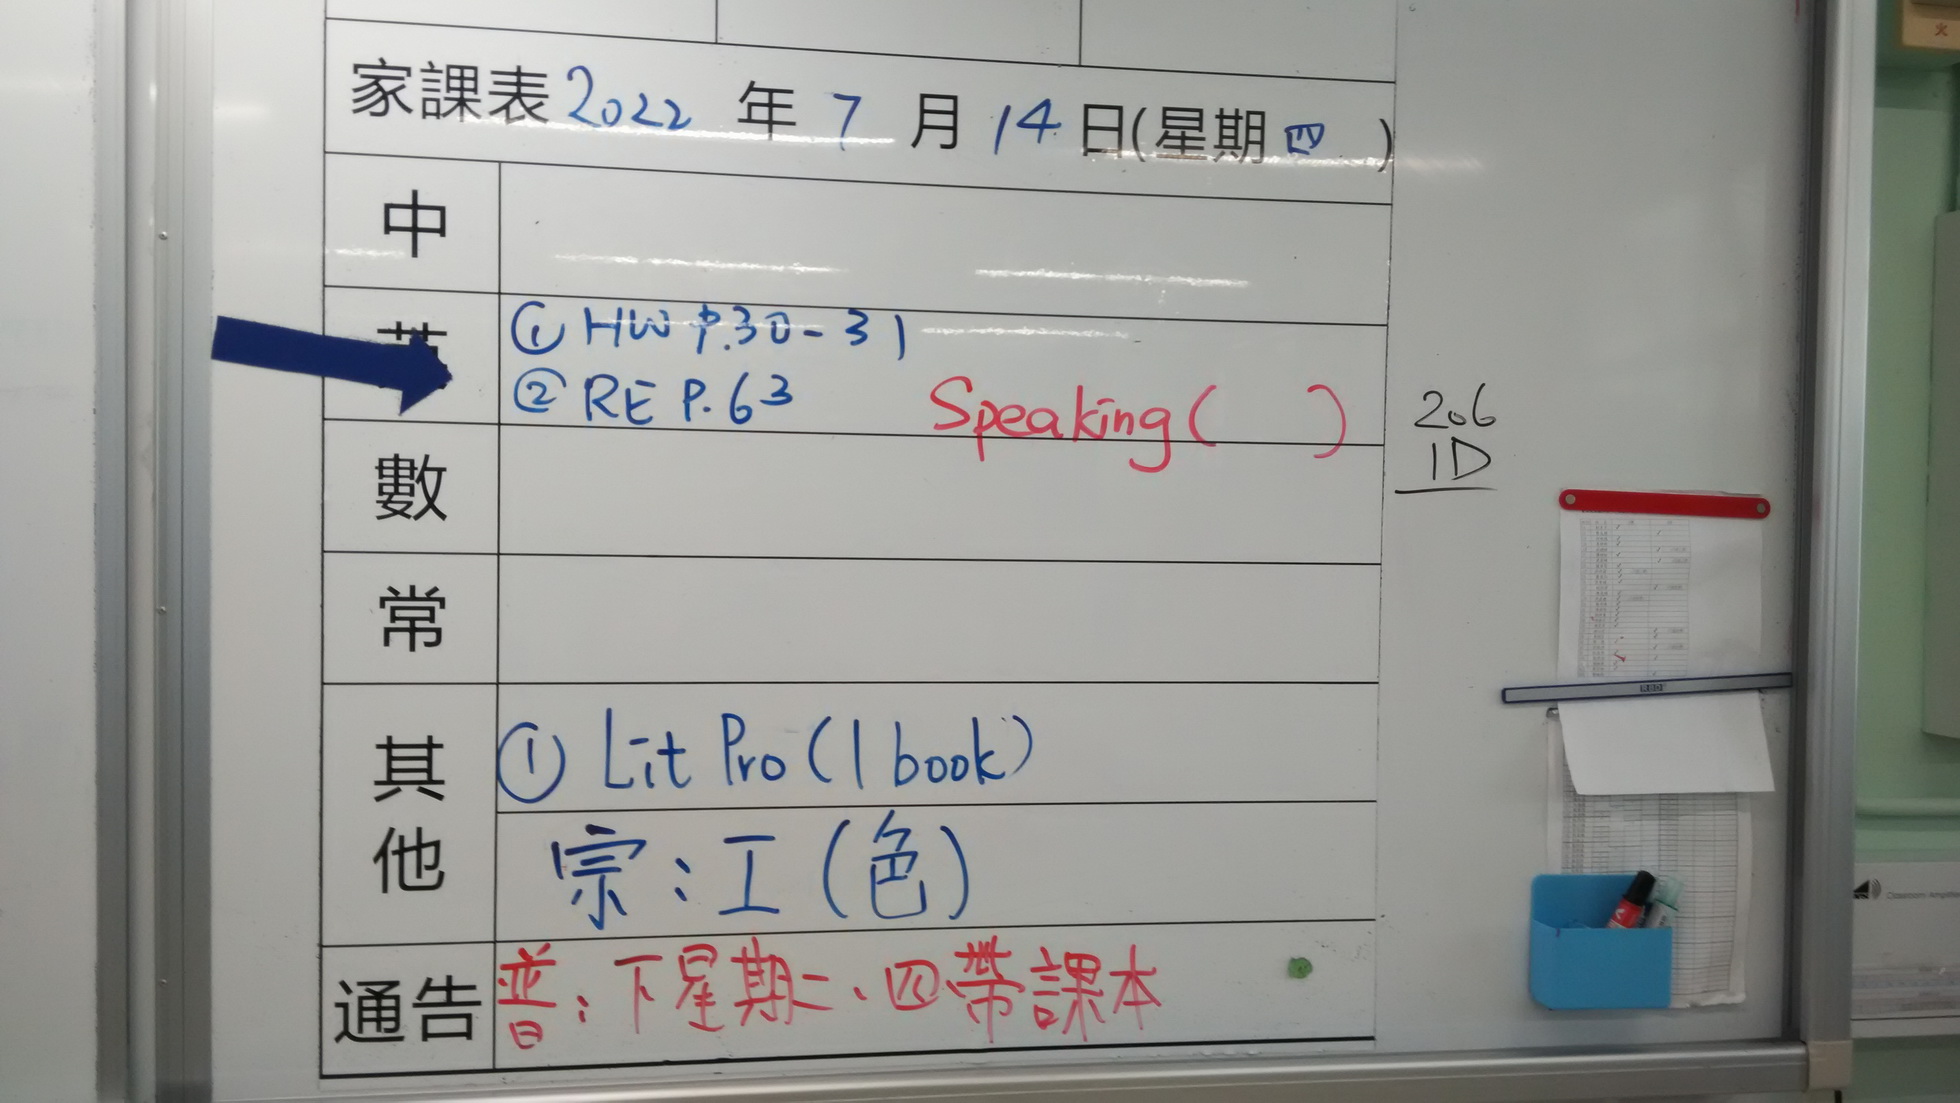 家課表 2022 年 7 月 14 日(星期四)
中
英
① HW P.30-31
② RE P.63 Speaking( )
206
1D
數
常
其他
① Lit Pro (1 book)
宗:工(色)
通告
普:下星期二、四帶課本
火